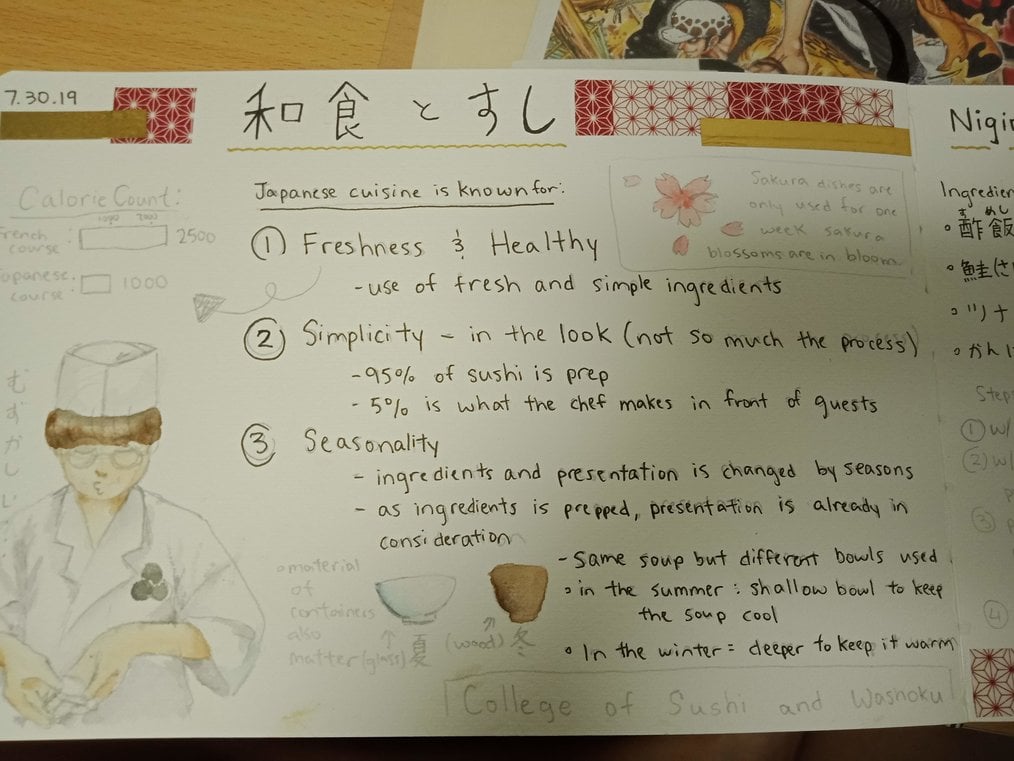 7.30.19
和食とすし
Calorie Count:
1000 2000
French course : 2500
Japanese course : 1000
Japanese cuisine is known for:
① Freshness & Healthy
- use of fresh and simple ingredients
Sakura dishes are
only used for one
week sakura
blossoms are in bloom.
② Simplicity - in the look (not so much the process)
- 95% of sushi is prep
- 5% is what the chef makes in front of guests
③ Seasonality
- ingredients and presentation is changed by seasons
- as ingredients is prepped, presentation is already in
consideration
- Same soup but different bowls used
◦ in the summer : shallow bowl to keep
the soup cool
◦ In the winter = deeper to keep it warm
◦ material
of
containers
also
matter (glass) 夏 (wood) 冬
むずかしい
College of Sushi and Washoku
Nigir
Ingredien
すめし
◦ 酢飯
◦ 鮭(さ
◦ ツナ
◦ かん
Step
① w/
② w/
③
④